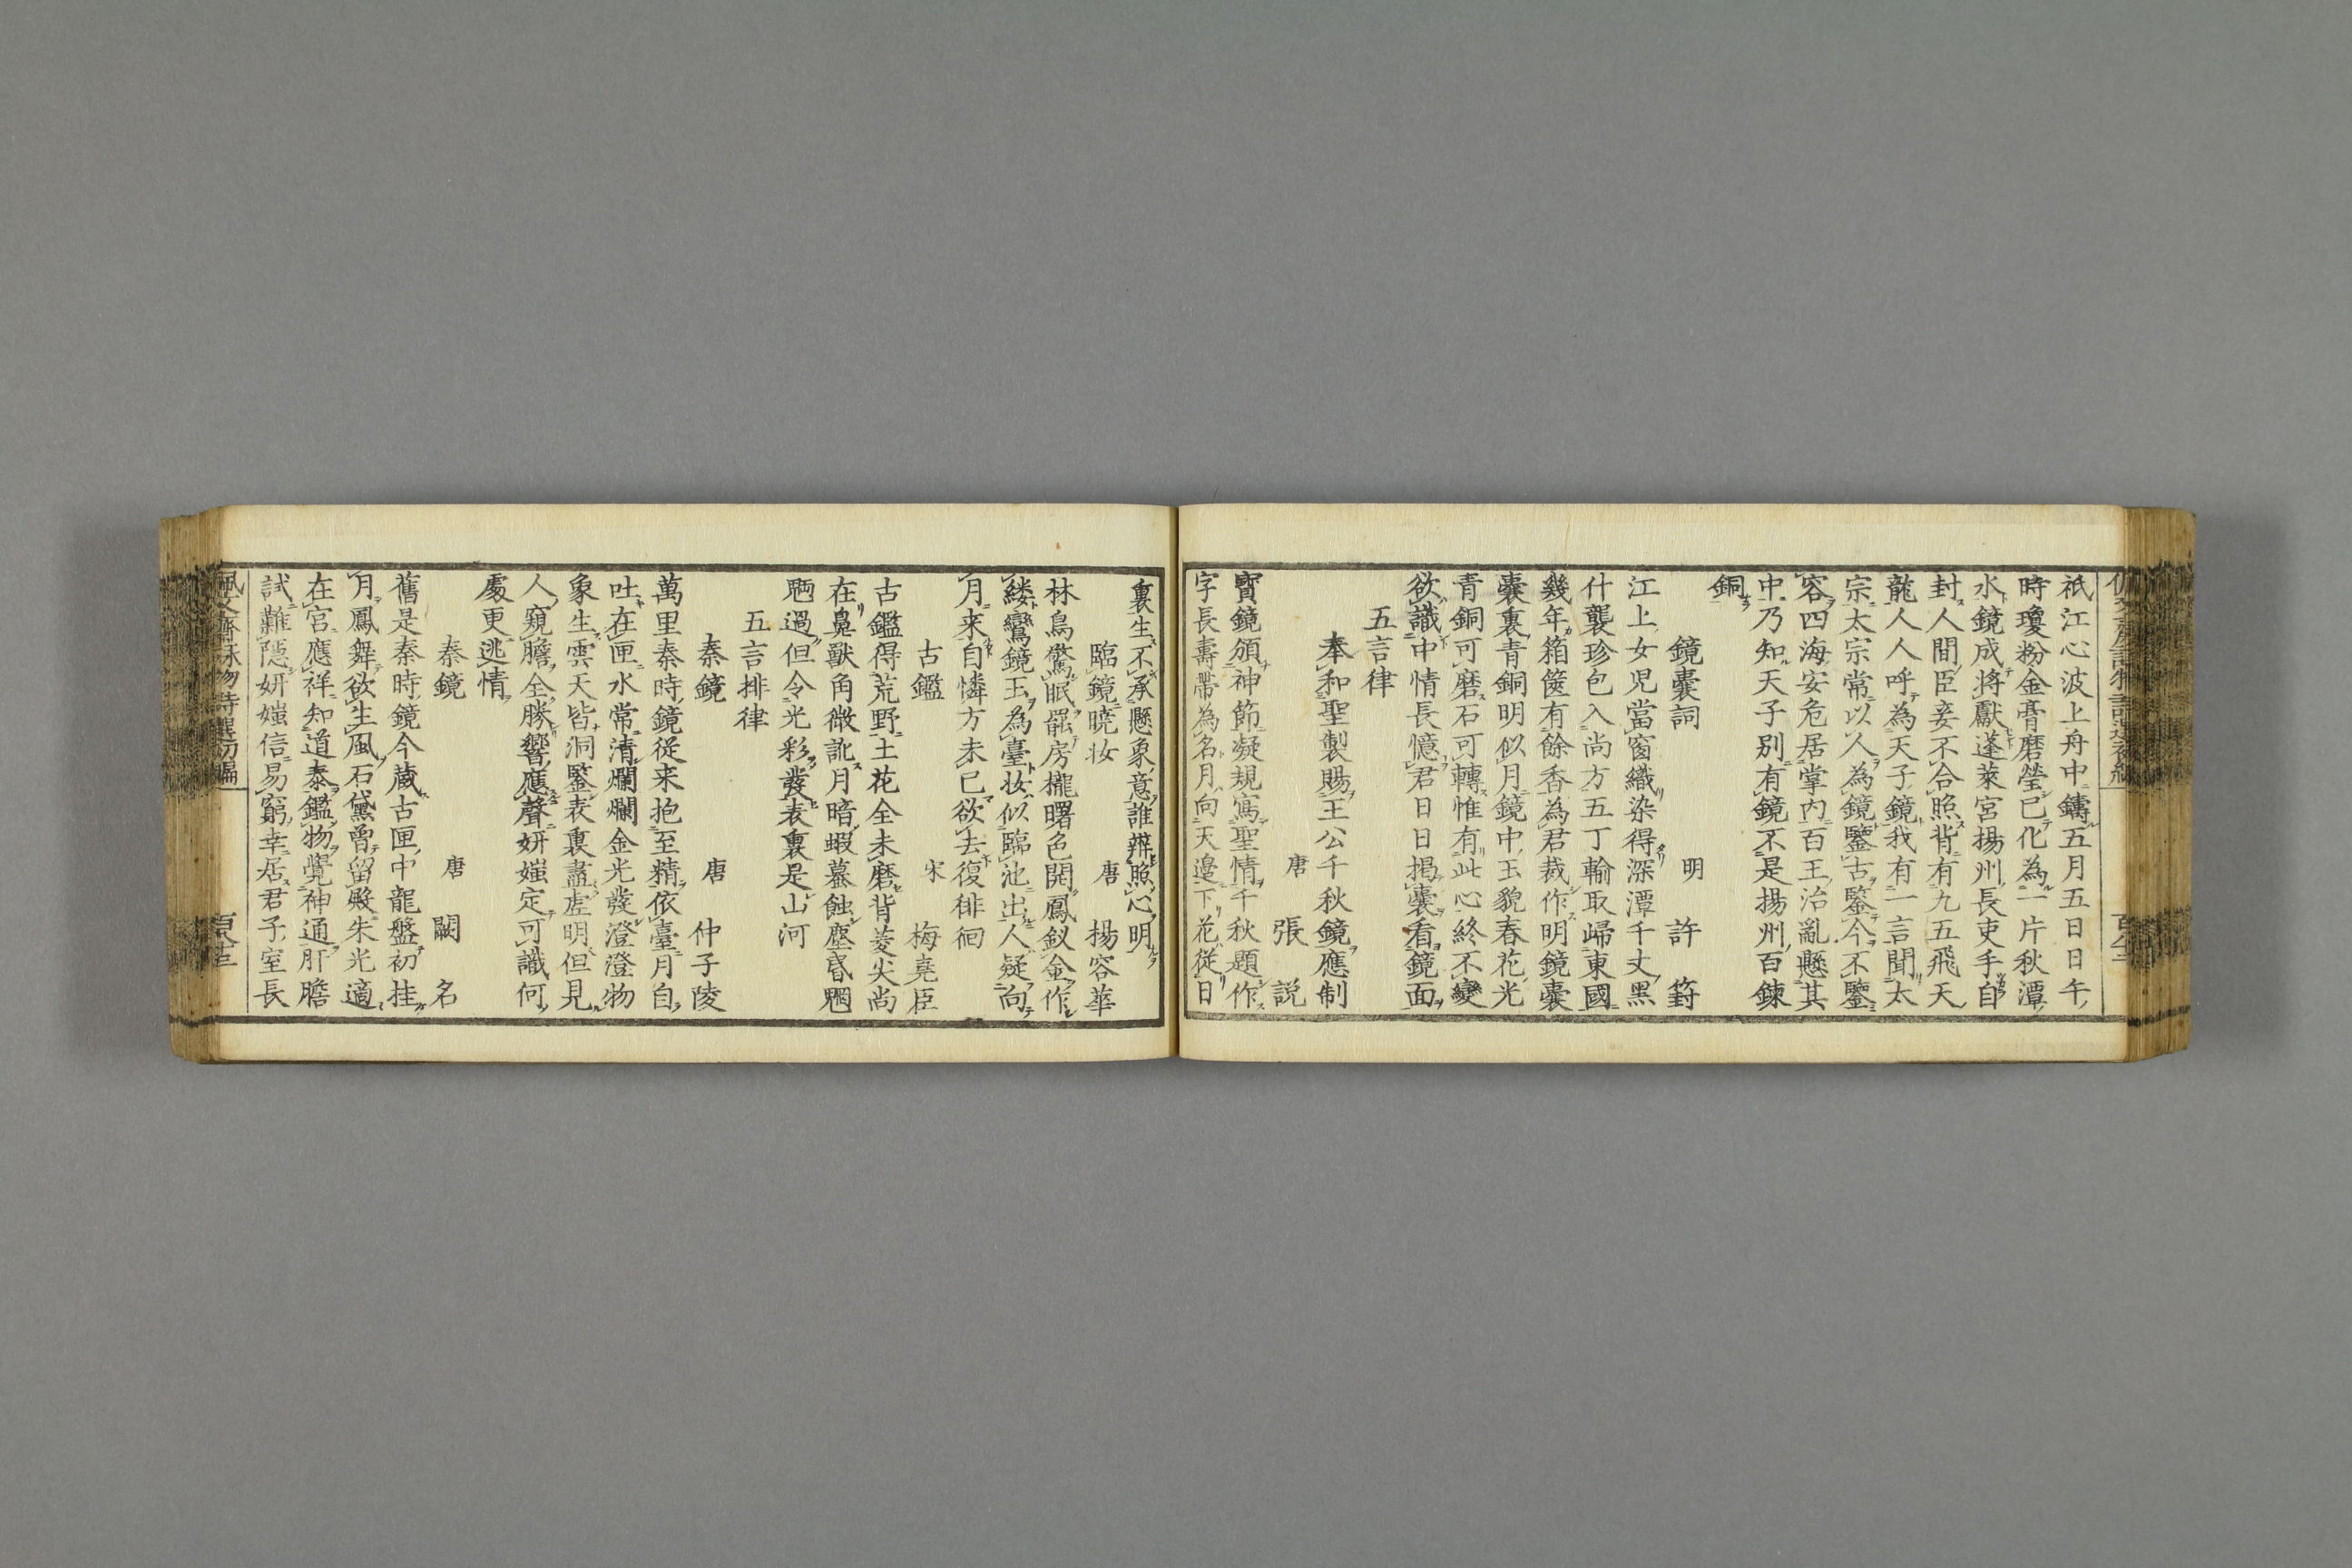 祇江心波上舟中鑄五月五日日午
時瓊粉金膏磨瑩已化為一片秋潭
水鏡成将獻蓬萊宮揚州長吏手自
封人間臣妾不合照背有九五飛天
龍人人呼為天子鏡我有一言聞太
宗太宗常以人為鏡鑒古鑒今不鑒
容四海安危居掌内百王治亂懸其
中乃知天子別有鏡不是揚州百鍊
銅
鏡囊詞 明 許 篈
江上女児當窗織染得深潭千丈黒
什襲珍包入尚方五丁輸取歸東國
幾年箱篋有餘香為君裁作明鏡囊
囊裏青銅明似月鏡中玉貌春花光
青銅可磨石可轉惟有此心終不變
欲識中情長憶君日日掲囊看鏡面
五言律
奉和聖製賜王公千秋鏡應制
唐 張 説
寳鏡頒神節凝規寫聖情千秋題作
字長壽帶為名月向天邊下花従日
裏生不承懸象意誰辨照心明
臨鏡曉妆 唐 楊容華
林鳥驚眠罷房櫳曙色開鳳釵金作
縷鸞鏡玉為臺妆似臨池出人疑向
月来自憐方未已欲去復徘徊
古鑑 宋 梅堯臣
古鑑得荒野土花全未磨背菱尖尚
在鼻獣角微訛月暗蝦蟇蝕塵昏魍
魎過但令光彩發表裏是山河
五言排律
秦鏡 唐 仲子陵
萬里秦時鏡従来抱至精依臺月自
吐在匣水常清爛爛金光發澄澄物
象生雲天皆洞鑒表裏盡虚明但見
人窺膽全勝響應聲妍媸定可識何
處更逃情
秦鏡 唐 闕 名
舊是秦時鏡今蔵古匣中龍盤初挂
月鳳舞欲生風石黛曾留殿朱光適
在宮應祥知道泰鑑物覺神通肝膽
試難隱妍媸信易窮幸居君子室長
佩文齋詠物詩選初編